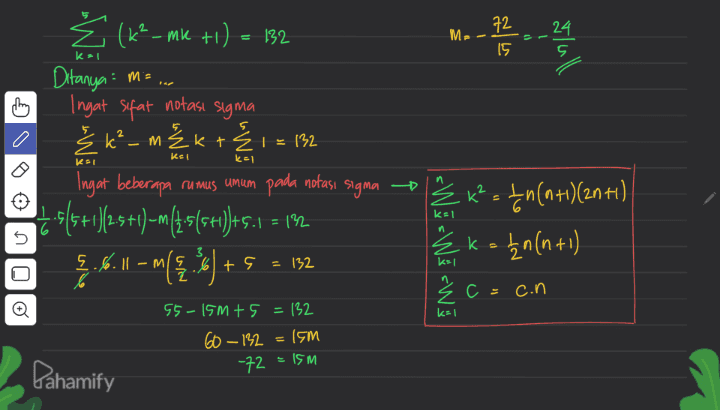 5
Σ (k² - mk + 1) = 132
k=1
Ditanya : m = ...
Ingat sifat notasi sigma
5 5 5
Σ k² - m Σ k + Σ 1 = 132
k=1 k=1 k=1
Ingat beberapa rumus umum pada notasi sigma →
1/6 · 5(5+1)(2.5+1) - m(1/2 · 5(5+1)) + 5.1 = 132
5/6 · 6 · 11 - m(5/2 · 6 3) + 5 = 132
55 - 15m + 5 = 132
60 - 132 = 15m
-72 = 15m
m = - 72/15 = - 24/5
n
Σ k² = 1/6 n(n+1)(2n+1)
k=1
n
Σ k = 1/2 n(n+1)
k=1
n
Σ C = C.n
k=1
Pahamify